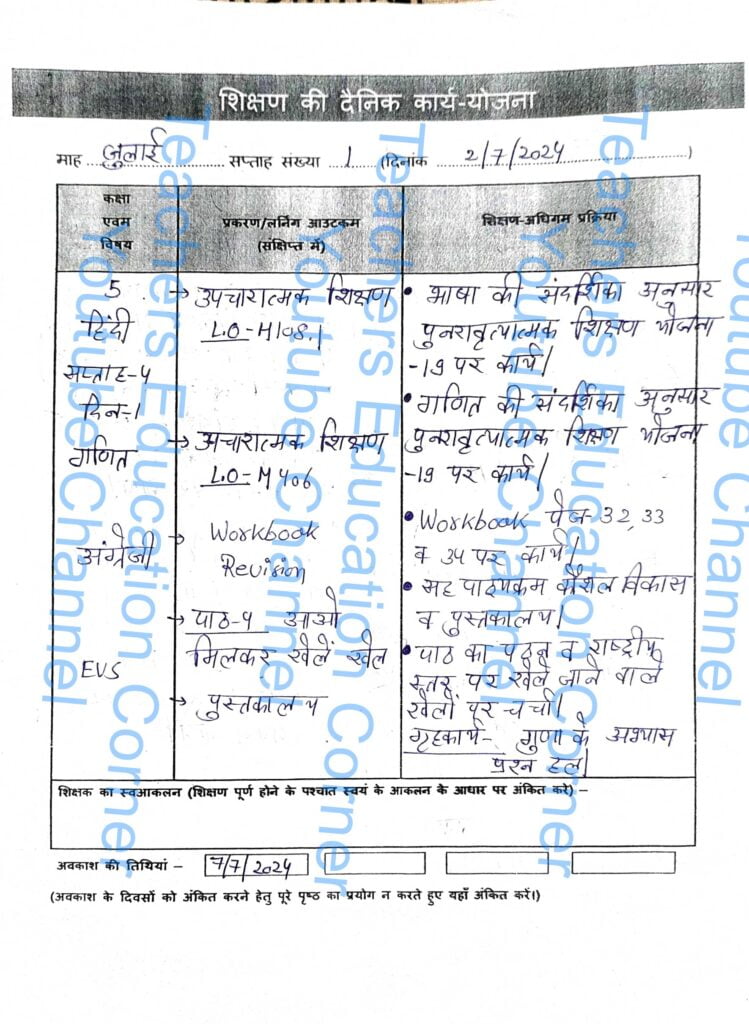 शिक्षण की दैनिक कार्य-योजना
माह जुलाई सप्ताह संख्या 1 (दिनांक 2/7/2024)
कक्षा
एवम
विषय
प्रकरण/लर्निंग आउटकम
(संक्षिप्त में)
शिक्षण-अधिगम प्रक्रिया
5
हिंदी
सप्ताह-4
दिन-1
गणित
अंग्रेजी
EVS
→ उपचारात्मक शिक्षण
L.O-H108.1
→ उपचारात्मक शिक्षण
L.O- M406
→ Workbook
Revision
→ पाठ-4 आओ
मिलकर खेलें खेल
→ पुस्तकालय
• भाषा की संदर्शिका अनुसार
पुनरावृत्यात्मक शिक्षण योजना
-19 पर कार्य|
• गणित की संदर्शिका अनुसार
पुनरावृत्यात्मक शिक्षण योजना
-19 पर कार्य|
• Workbook पेज-32,33
व 34 पर कार्य|
• सह पाठ्यक्रम कौशल विकास
व पुस्तकालय|
• पाठ का पठन व राष्ट्रीय
स्तर पर खेले जाने वाले
खेलों पर चर्चा|
गृहकार्य- गुणा के अभ्यास
प्रश्न हल|
शिक्षक का स्वआकलन (शिक्षण पूर्ण होने के पश्चात स्वयं के आकलन के आधार पर अंकित करें) –
अवकाश की तिथियां – 7/7/2024
(अवकाश के दिवसों को अंकित करने हेतु पूरे पृष्ठ का प्रयोग न करते हुए यहाँ अंकित करें।)
Teachers Education Corner
Youtube Channel
Teachers Education Corner
Youtube Channel
Teachers Education Corner
Youtube Channel